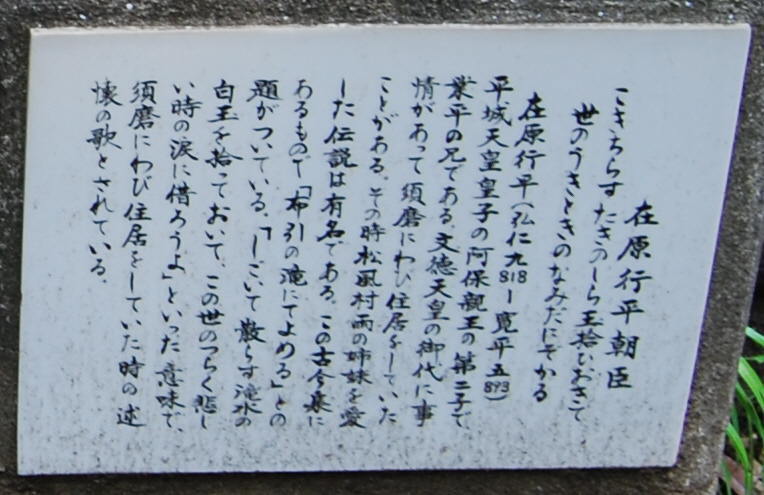 在原行平朝臣
こきちらす たきのしら玉拾ひおきて
世のうきときのなみだにそかる
在原行平(弘仁九818―寛平五893)
平城天皇皇子の阿保親王の第二子で
業平の兄である。文徳天皇の御代に事
情があって須磨にわび住居をしていた
ことがある。その時松風村雨の姉妹を愛
した伝説は有名である。この古今集に
あるもので「布引の滝にてよめる」との
題がついている。「しごいて散らす滝水の
白玉を拾っておいて、この世のつらく悲し
い時の涙に借ろうよ」といった意味で、
須磨にわび住居をしていた時の述
懐の歌とされている。